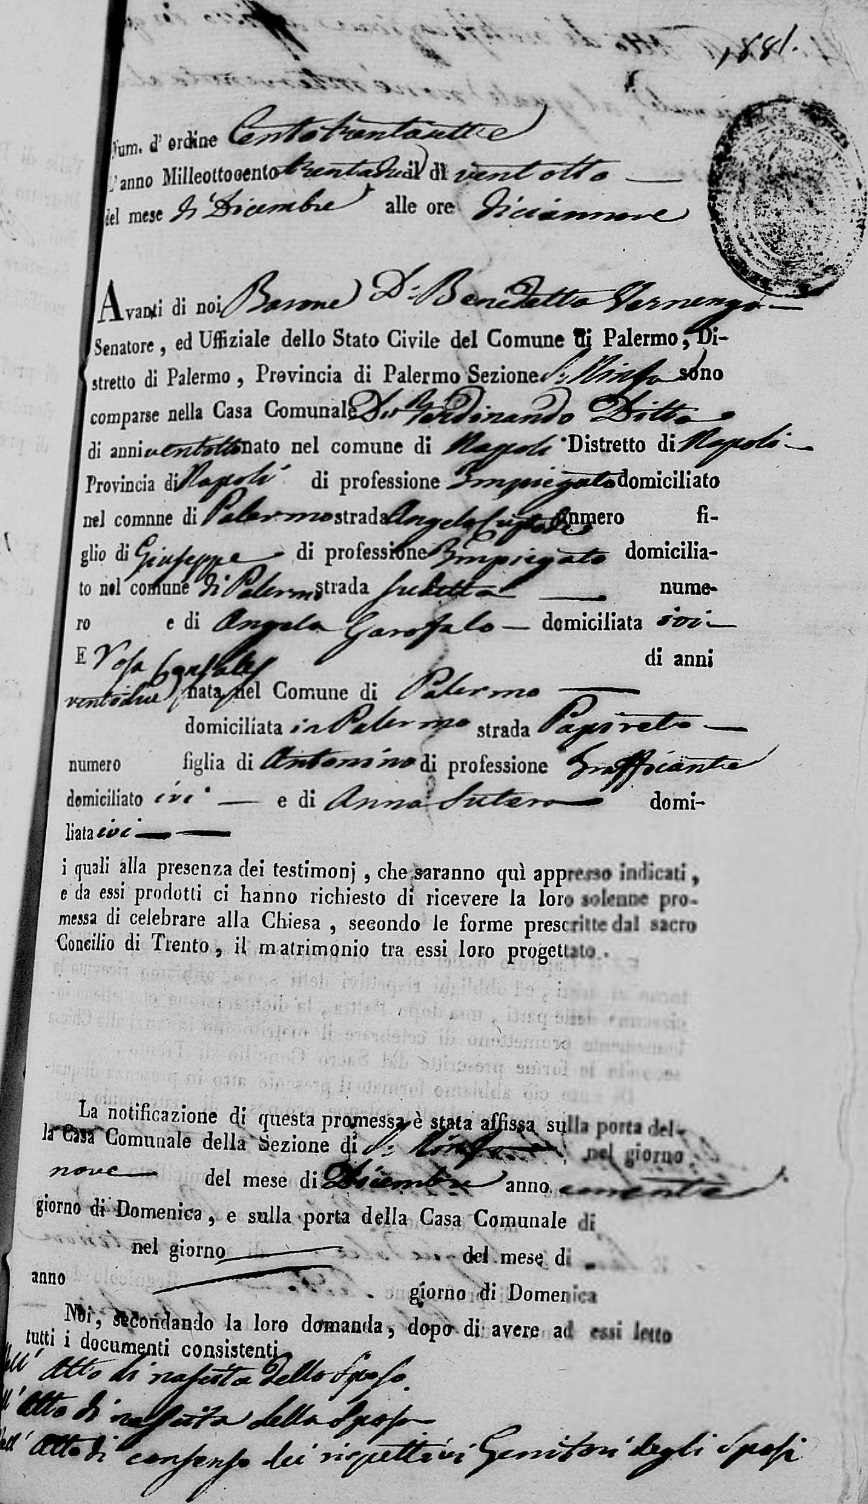 1881.
Num. d' ordine Centotrentasette
L'anno Milleottocento trentadue il dì ventotto
del mese di Dicembre alle ore diciannove
Avanti di noi Barone D. Benedetto Vernengo
Senatore, ed Uffiziale dello Stato Civile del Comune di Palermo, Di-
stretto di Palermo, Provincia di Palermo Sezione S. Ninfa sono
comparse nella Casa Comunale D. Ferdinando Ditto
di anni ventotto nato nel comune di Napoli Distretto di Napoli
Provincia di Napoli di professione Impiegato domiciliato
nel comune di Palermo strada Angelo Custode numero fi-
glio di Giuseppe di professione Impiegato domicilia-
to nel comune di Palermo strada sudetta nume-
ro e di Angela Garofalo domiciliata ivi
E Rosa di anni
ventidue nata nel Comune di Palermo
domiciliata in Palermo strada Papireto
numero figlia di Antonino di professione Trafficante
domiciliato ivi e di Anna Sutera domi-
liata ivi
i quali alla presenza dei testimonj, che saranno quì appresso indicati,
e da essi prodotti ci hanno richiesto di ricevere la loro solenne pro-
messa di celebrare alla Chiesa, secondo le forme prescritte dal sacro
Concilio di Trento, il matrimonio tra essi loro progettato.
La notificazione di questa promessa è stata affissa sulla porta del-
la Casa Comunale della Sezione di S. Ninfa nel giorno
nove del mese di Dicembre anno corrente
giorno di Domenica, e sulla porta della Casa Comunale di
nel giorno del mese di
anno giorno di Domenica
Noi, secondando la loro domanda, dopo di avere ad essi letto
tutti i documenti consistenti
Nell' Atto di nascita dello Sposo
Nell' Atto di nascita della Sposa
Nell' Atto di consenso dei rispettivi Genitori degli Sposi